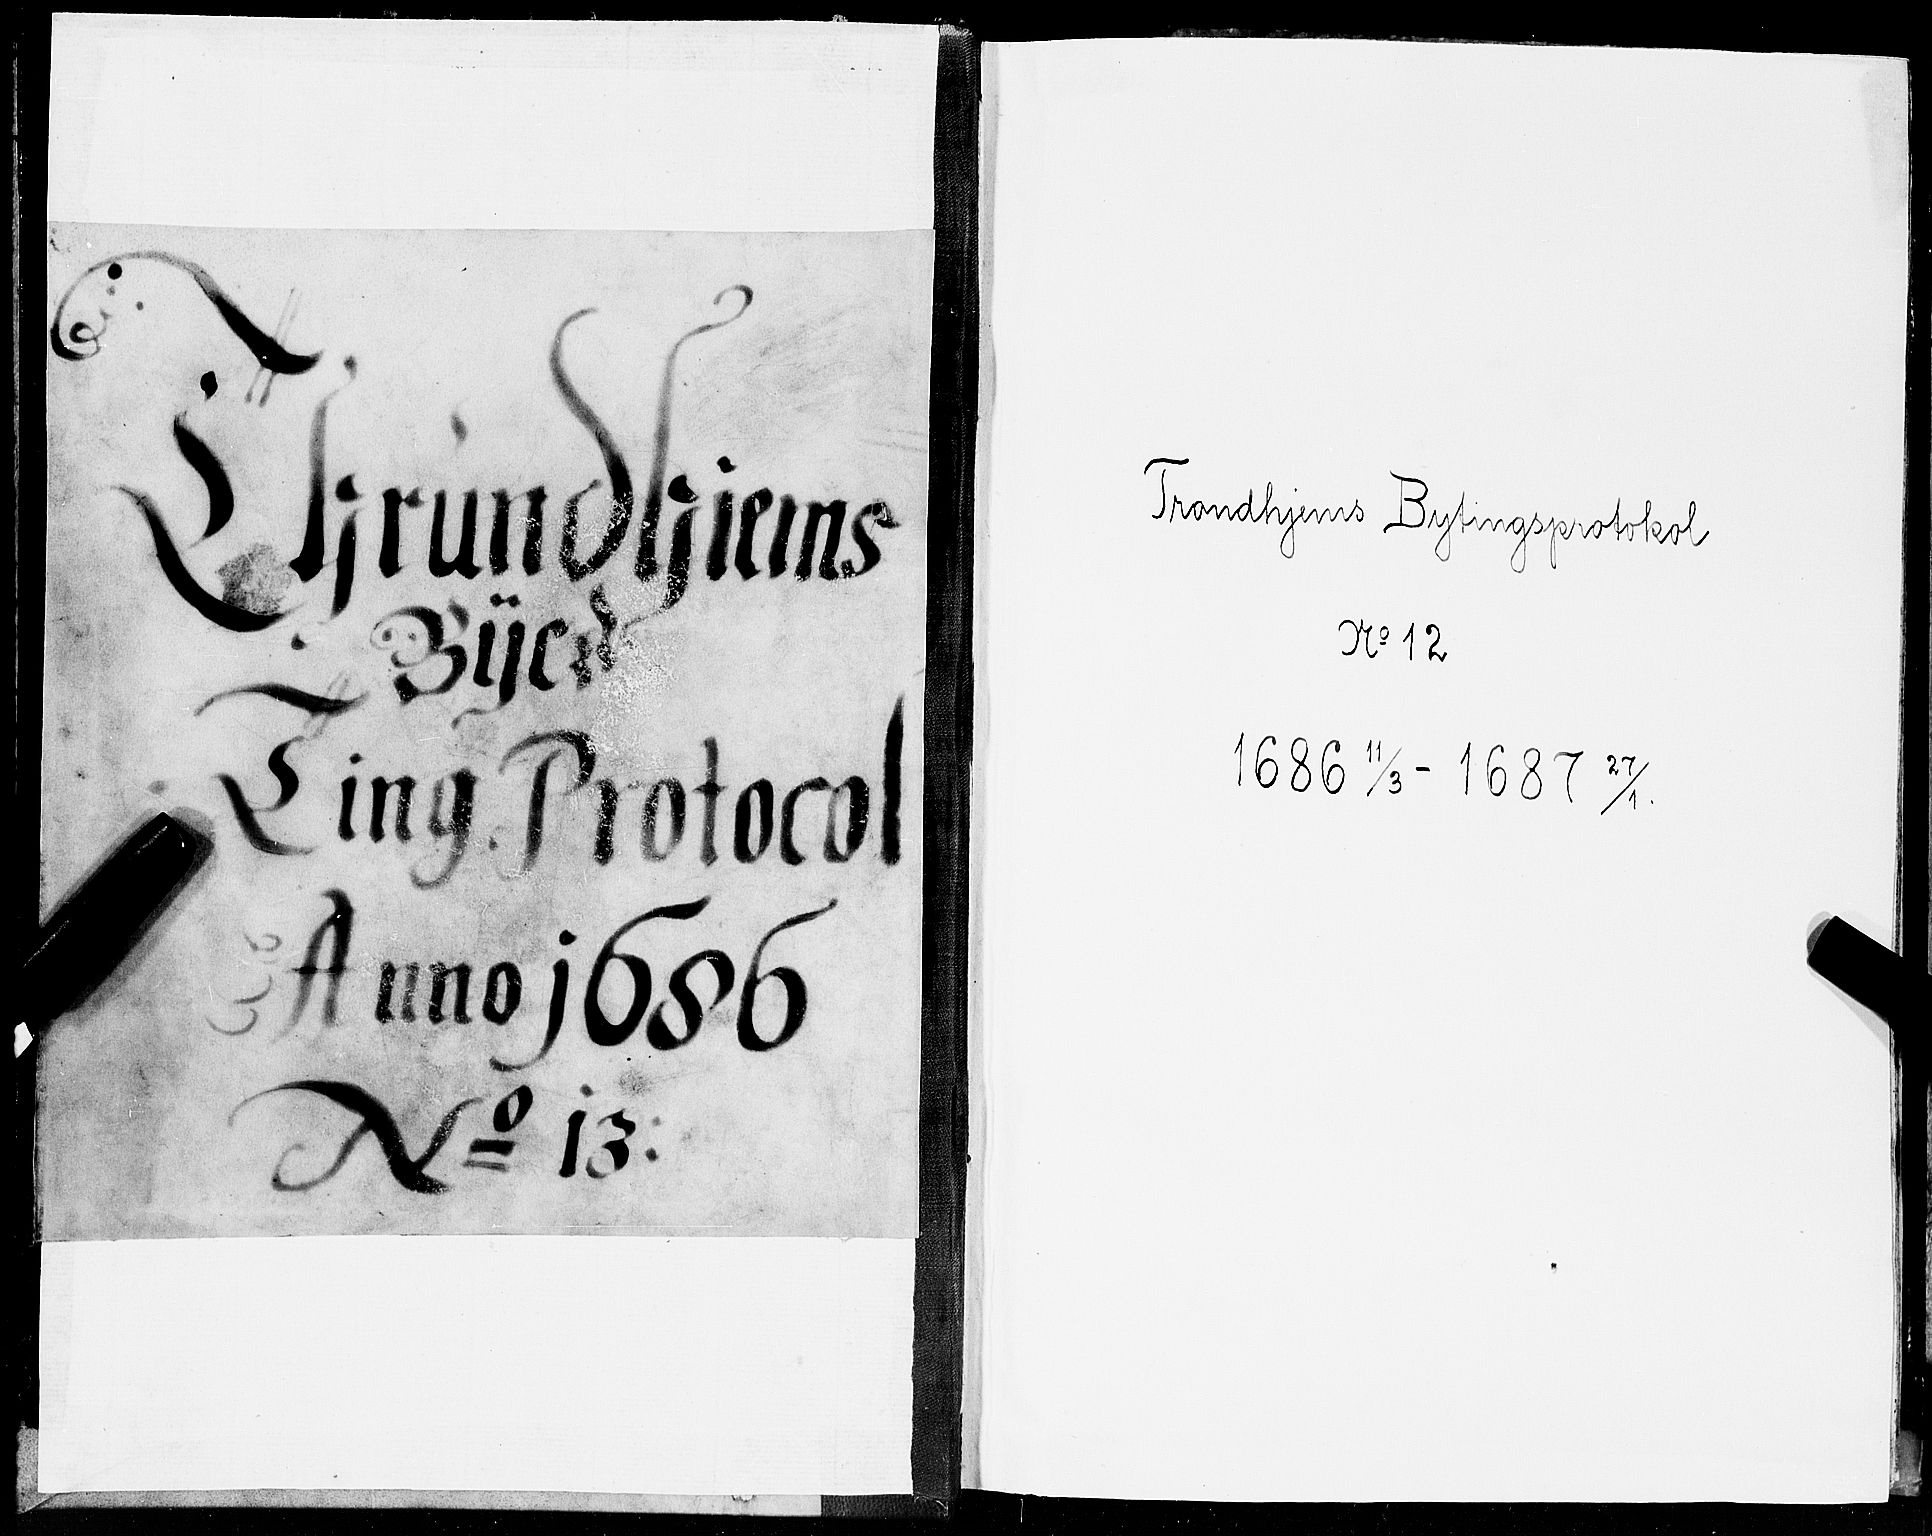 Thrundhiems
Bÿes
Ting Protocol
Anno 1686
No 13:
Trondhjems Bytingsprotokol
No 12
1686 11/3 - 1687 27/1.